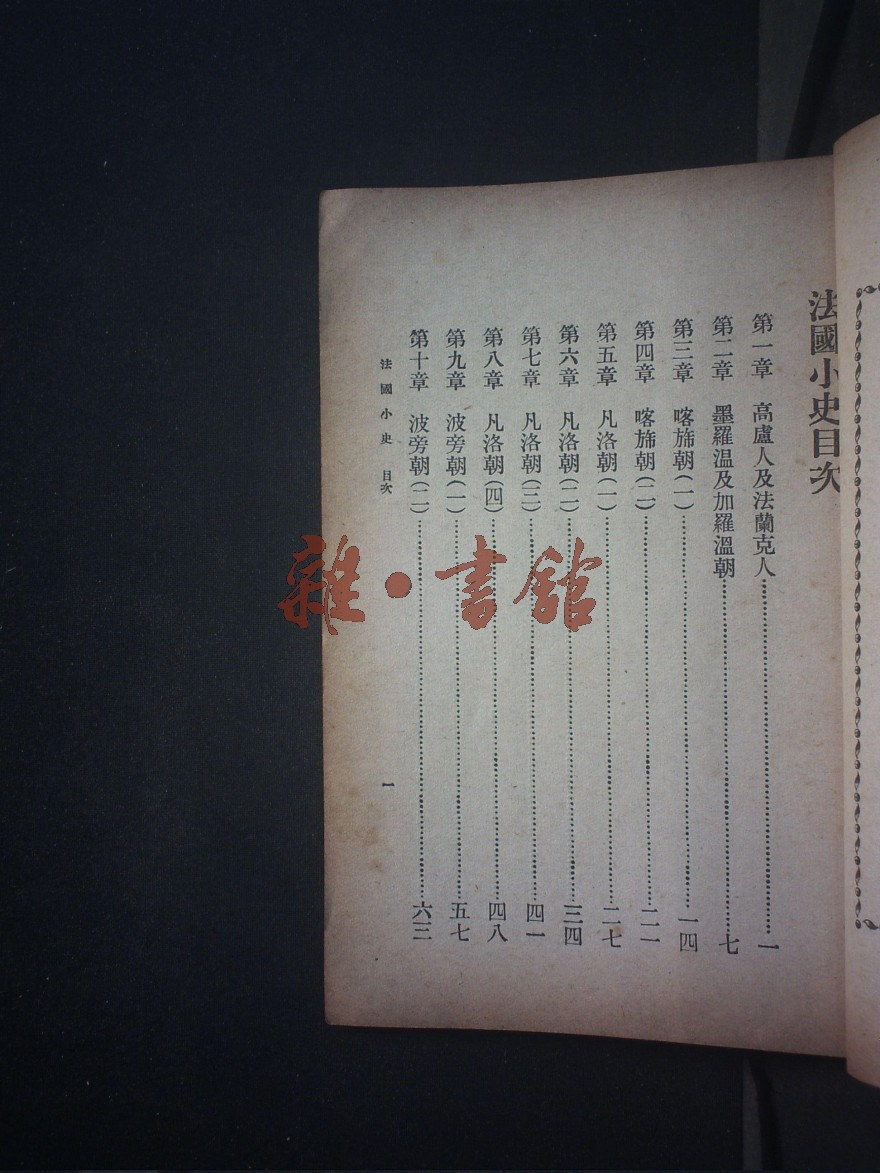 法國小史目次
第一章　高盧人及法蘭克人…………一
第二章　墨羅温及加羅溫朝…………七
第三章　喀旆朝(一)…………一四
第四章　喀旆朝(二)…………二一
第五章　凡洛朝(一)…………二七
第六章　凡洛朝(二)…………三四
第七章　凡洛朝(三)…………四一
第八章　凡洛朝(四)…………四八
第九章　波旁朝(一)…………五七
第十章　波旁朝(二)…………六三
法國小史　目次　一
雜·書館